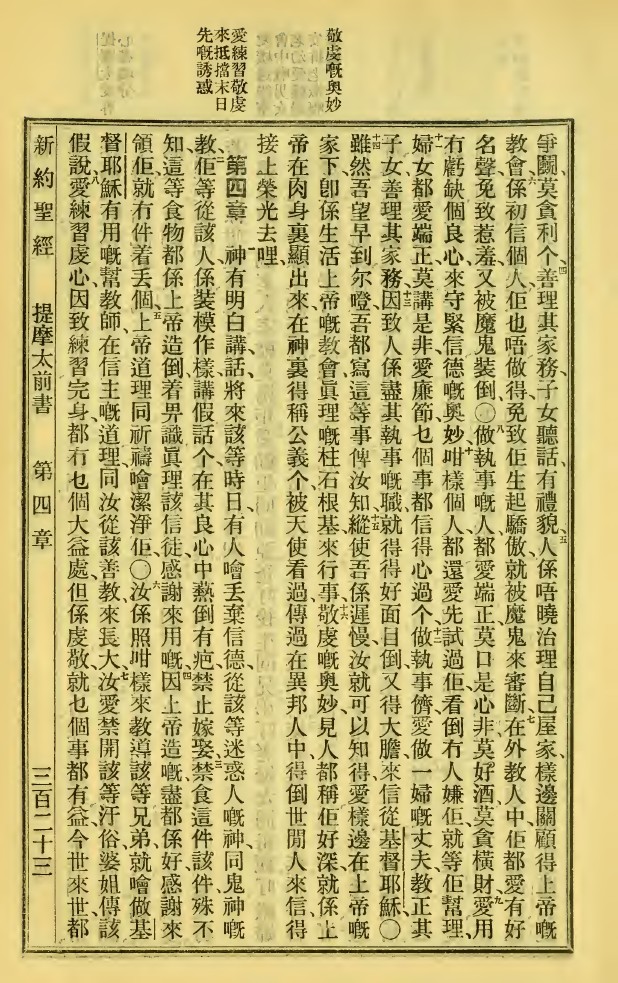 敬虔嘅奧妙
愛練習敬虔
來抵擋末日
先嘅誘惑
爭鬭、莫貪利、个善理其家務、子女聽話、有禮貌、人係唔曉治理自己屋家樣邊關顧得上帝嘅
教會、係初信個人佢也唔做得、免致佢生起驕傲、就被魔鬼來審斷、在外教人中、佢都愛有好
名聲、免致惹羞、又被魔鬼裝倒、〇做執事嘅人、都愛端正、莫口是心非、莫好酒、莫貪橫財、愛用
冇虧缺個良心、來守緊信德嘅奧妙、咁樣個人、都還愛先試過佢、看倒冇人嫌佢、就等佢幫理、
婦女都愛端正、莫講是非、愛廉節、乜個事都信得心過、个做執事儕、愛做一婦嘅丈夫、教正其
子女、善理其家務、因致人係盡其執事嘅職、就得得好面目倒、又得大膽來信從基督耶穌、〇
雖然吾望早到尔嶝、吾都寫這等事俾汝知、縱使吾係遲慢、汝就可以知得愛樣邊在上帝嘅
家下、卽係生活上帝嘅教會、眞理嘅柱石根基來行事、敬虔嘅奧妙、見人都稱佢好深、就係上
帝在肉身裏顯出來、在神裏得稱公義个、被天使看過、傳過在異邦人中、得倒世閒人來信、得
接上榮光去哩、
第四章 神有明白講話、將來該等時日、有人噲丟棄信德、從該等迷惑人嘅神、同鬼神嘅
教、佢等從該人係裝模作樣講假話个、在其良心中熱倒有疤、禁止嫁娶、禁食這件該件、殊不
知這等食物、都係上帝造倒、着畀識眞理該信徒、感謝來用嘅、因上帝造嘅盡都係好、感謝來
領佢、就冇件着丟個、上帝道理同祈禱、噲潔淨佢、〇汝係照咁樣來教導該等兄弟、就噲做基
督耶穌有用嘅幫教師、在信主嘅道理、同汝從該善教來長大、汝愛禁開該等汙俗、婆姐傳該
假說、愛練習虔心、因致練習完身、都冇乜個大益處、但係虔敬、就乜個事都有益、今世來世、都
新約聖經 提摩太前書 第四章 三百二十三